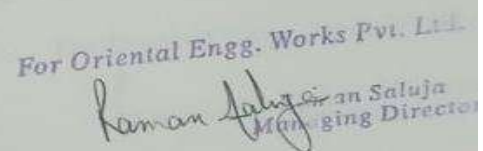 For Oriental Engg. Works Pvt. Ltd.
Raman Saluja
an Saluja
Managing Director